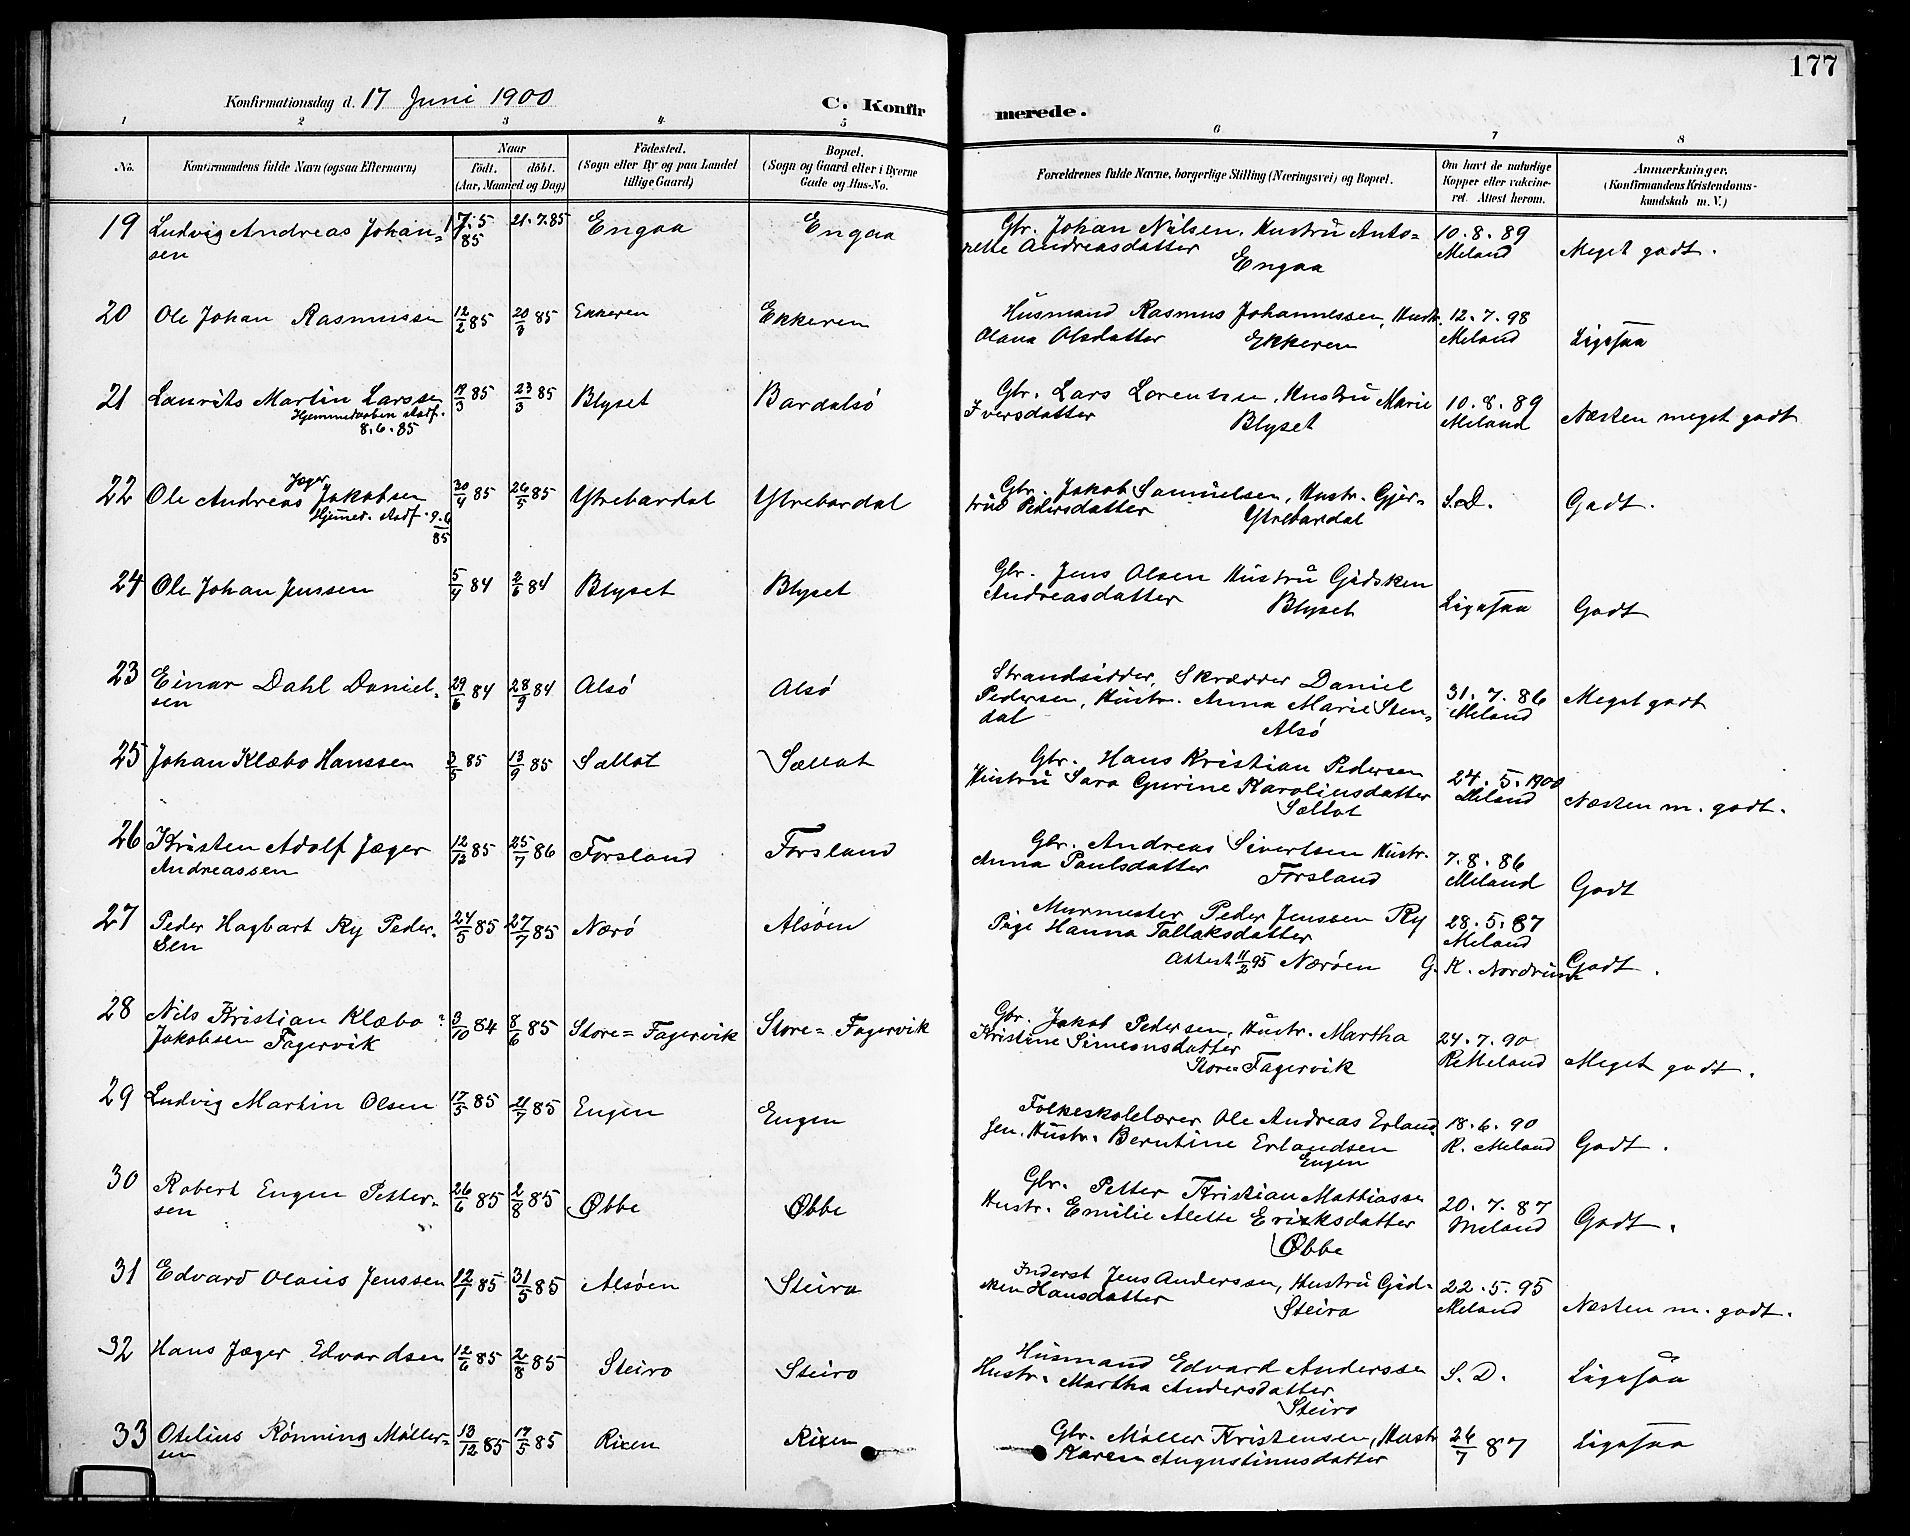 177
Konfirmationsdag d. 17 Juni 1900 C. Konfirmerede.
1 2 3 4 5 6 7 8
No. Konfirmandens fulde Navn (ogsaa Efternavn) Naar födt. döbt. (Aar, Maaned og Dag) Födested. (Sogn eller By og paa Landet tillige Gaard) Bopæl. (Sogn og Gaard eller i Byerne Gade og Hus-No. Forældrenes fulde Navne, borgerlige Stilling (Næringsvei) og Bopæl. Om havt de naturlige Kopper eller vakcineret. Attest herom. Anmærkninger. (Konfirmandens Kristendomskundskab m. V.)
19 Ludvig Andreas Johansen 17.5 85 21.7.85 Engaa Engaa Gbr. Johan Nilsen, Hustru Antorette Andreasdatter Engaa 10.8.89 Meland Meget godt.
20 Ole Johan Rasmussen 12/2 85 20/3 85 Ekkeren Ekkeren Husmand Rasmus Johannessen, Hustr. Olava Olsdatter Ekkeren 12.7.98 Meland Ligesaa
21 Laurits Martin Larssen Hjemmedøben stadf. 8.6.85 18/3 85 23/3 85 Blyset Bardalsö Gbr. Lars Lorentsen, Hustru Marie Iversdatter Blyset 10.8.89 Meland Næsten meget godt
22 Ole Andreas Jæger Jakobsen Hjemmed. stadf. 9.6 85 30/4 85 26/5 85 Ytrebardal Ytrebardal Gbr. Jakob Samuelsen, Hustr. Gjertrud Pedersdatter Ytrebardal S.D. Godt.
24 Ole Johan Jenssen 5/4 84 2/6 84 Blyset Blyset Gbr. Jens Olsen Hustru Gidsken Andreasdatter Blyset Ligesaa Godt
23 Einar Dahl Danielsen 29/6 84 28/9 84 Alsö Alsö Strandsidder, Skrædder Daniel Pedersen, Hustr. Anna Marie Stendal Alsö 31.7.86 Meland Meget godt
25 Johan Klæbo Hanssen 3/5 85 13/9 85 Sællot Sællot Gbr. Hans Kristian Pedersen Hustru Sara Gurine Karoliusdatter Sællot 24.5.1900 Meland Næsten m. godt.
26 Kristen Adolf Jæger Andreassen 12/12 85 25/7 86 Forsland Forsland Gbr. Andreas Sivertsen Hustr. Anna Paulsdatter Forsland 7.8.86 Meland Godt
27 Peder Hagbart Ry Pedersen 24/5 85 27/7 85 Nærö Alsöen Murmester Peder Jenssen Ry Pige Hanna Tollaksdatter Attest 11/2 95 Næröen 28.5.87 Meland G. K. Nordrum Godt.
28 Nils Kristian Klæbo Jakobsen Fagervik 3/10 84 8/6 85 Store=Fagervik Store=Fagervik Gbr. Jakob Pedersen, Hustr. Martha Kristine Simeonsdatter Store=Fagervik 24.7.90 R. Meland Meget godt.
29 Ludvig Martin Olsen 17/5 85 21/7 85 Engen Engen Folkeskolelærer Ole Andreas Erlandsen. Hustr. Berntine Erlandsen Engen 18.6.90 R. Meland Godt.
30 Robert Engen Pettersen 26/6 85 2/8 85 Øbbe Øbbe Gbr. Petter Kristian Mathiassen Hustr. Emilie Alette Eriksdatter Øbbe 20.7.87 Meland Godt.
31 Edvard Olaus Jenssen 12/1 85 31/5 85 Alsöen Steiro Inderst Jens Anderssen, Hustru Gidsken Hansdatter Steiro 22.5.95 Meland Næsten m. godt.
32 Hans Jæger Edvardsen 12/6 85 2/8 85 Steiro Steiro Husmand Edvard Anderssen Hustr. Martha Andersdatter Steiro S.D. Ligesaa
33 Otelius Rönning Möllersen 13/12 85 17/5 85 Rixen Rixen Gbr. Möller Kristensen, Hustr Karen Augustinusdatter 26/7 87 Ligesaa